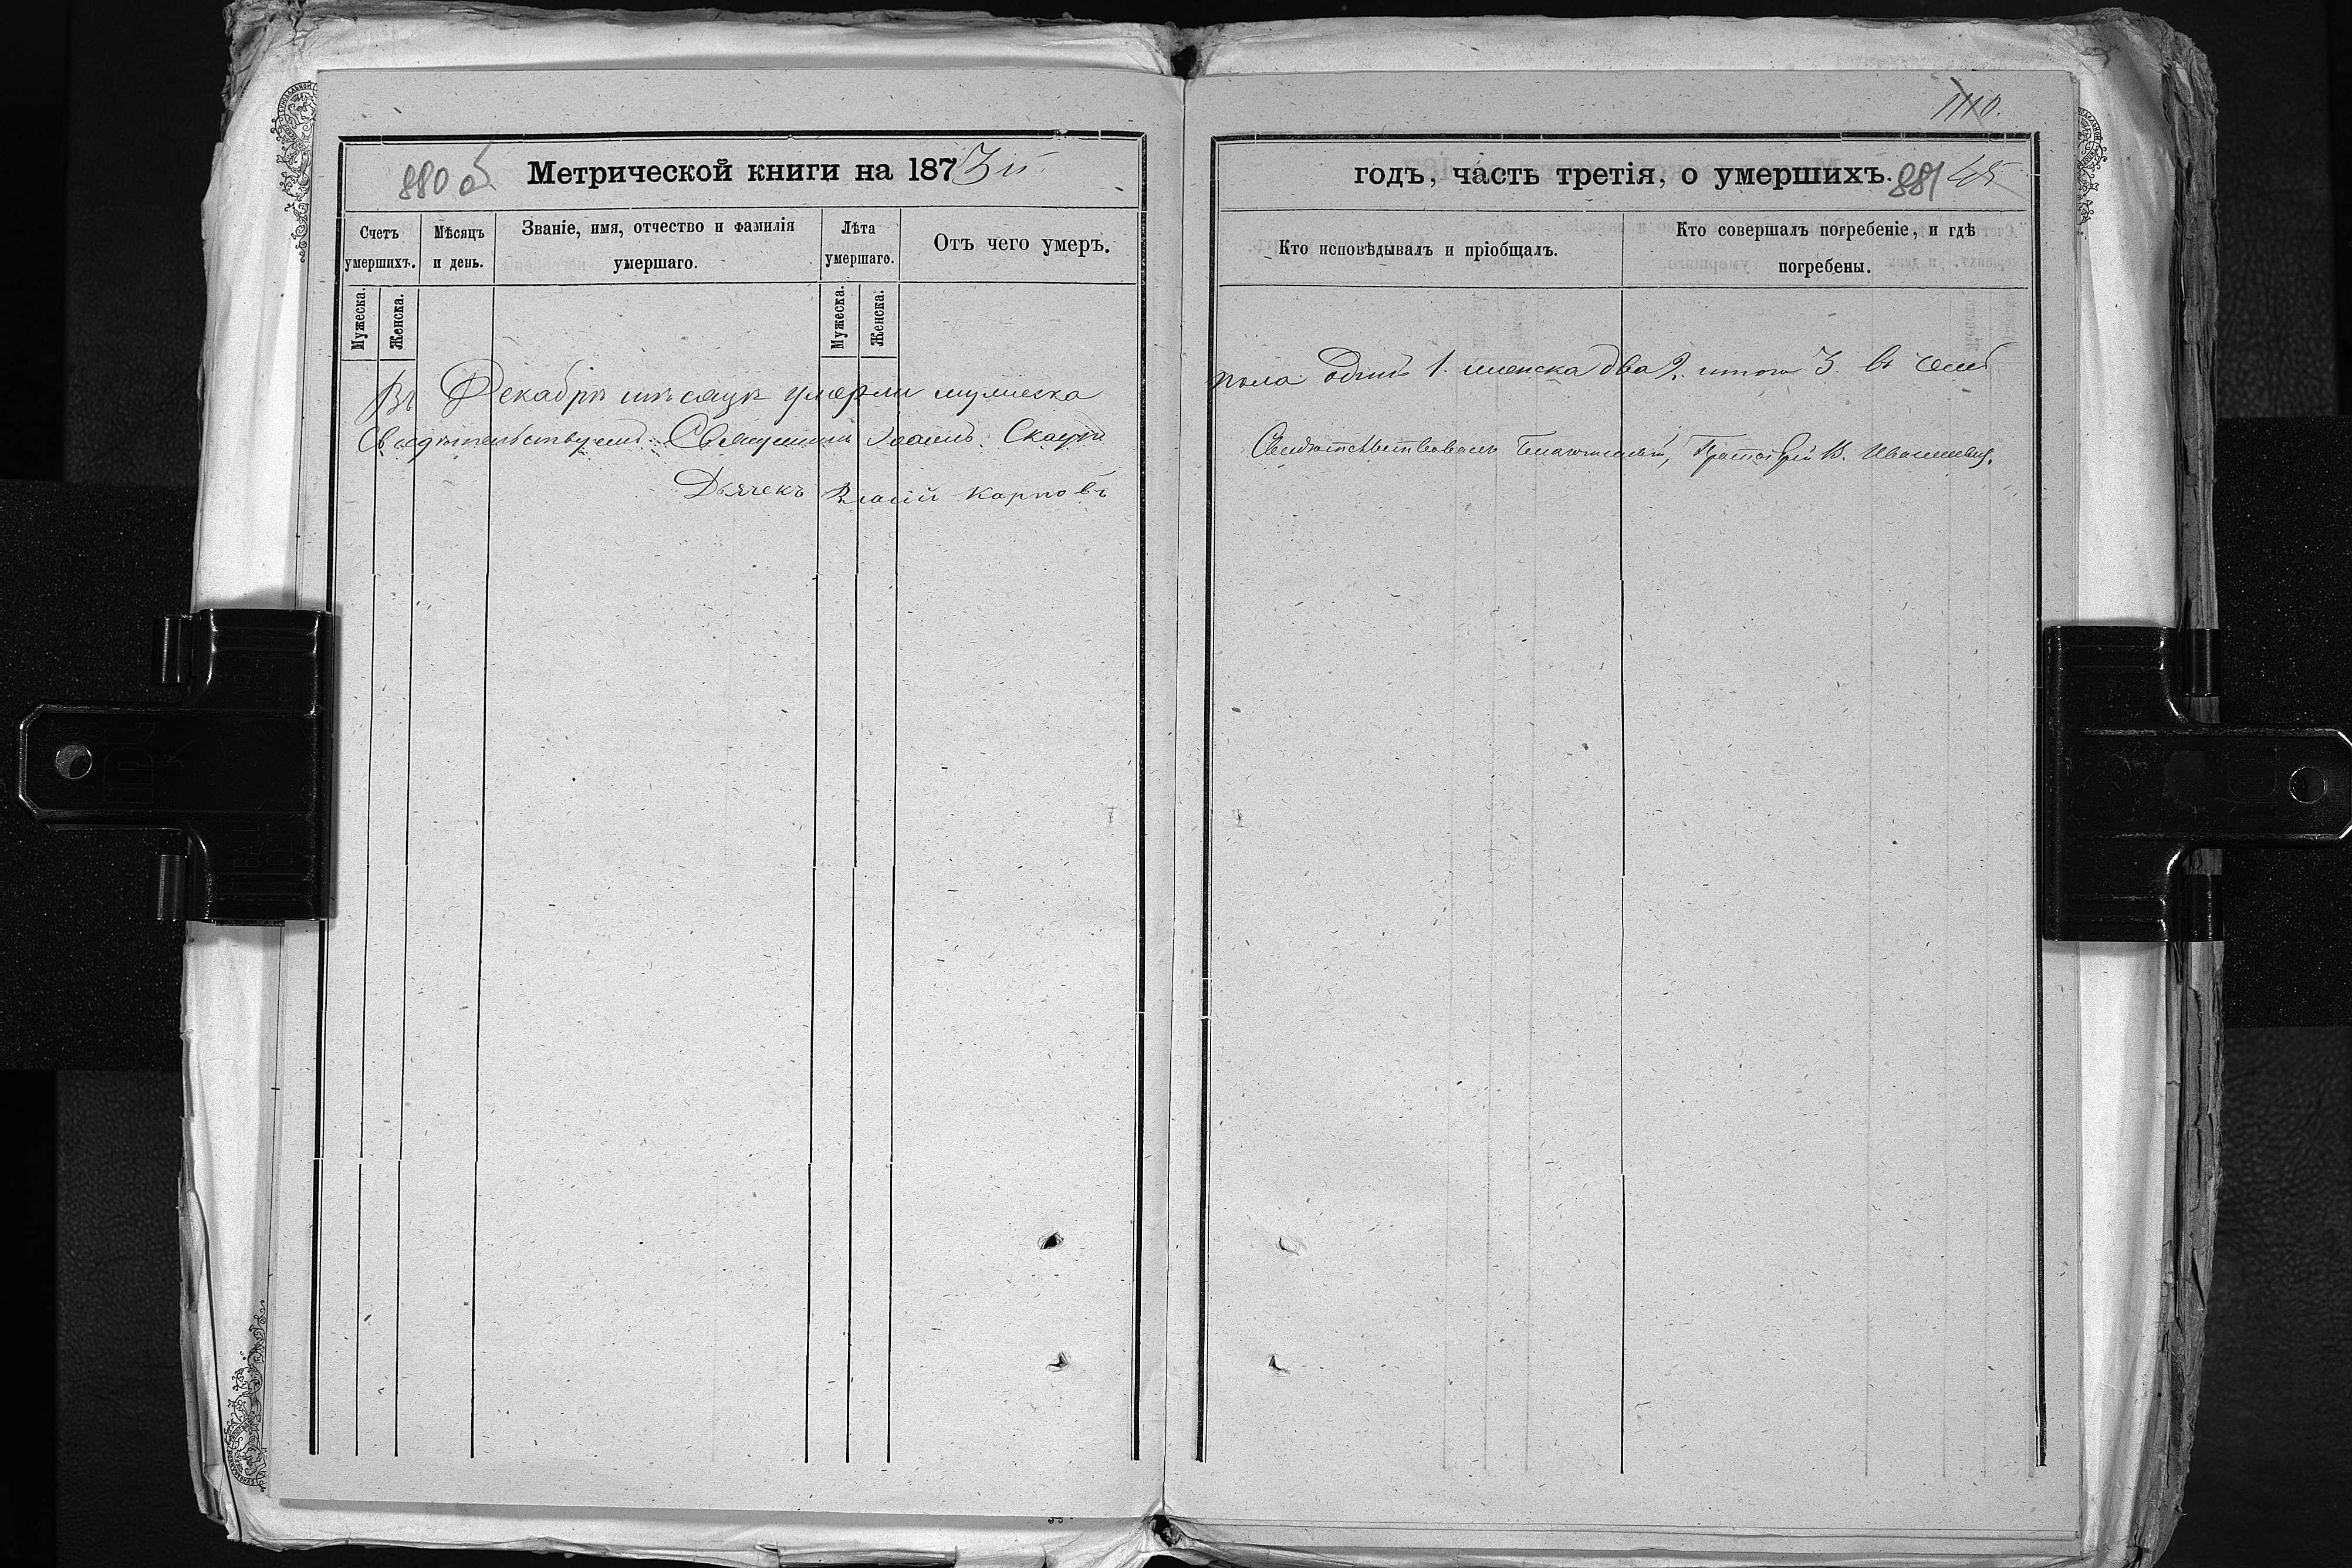 1110.
880 об. Метрической книги на 1873й
Счетъ умершихъ.
Мѣсяцъ и день.
Званіе, имя, отчество и фамилія умершаго.
Лѣта умершаго.
Отъ чего умеръ.
Мужеска.
Женска.
Мужеска.
Женска.
Въ Декабрѣ мѣсяцѣ умерли мужеска
Свидѣтельствуемъ: Священникъ Іоаннъ
Дьячекъ Власій Карповъ
годъ, часть третія, о умершихъ. 881
Кто исповѣдывалъ и пріобщалъ.
Кто совершалъ погребеніе, и гдѣ погребены.
пола одинъ 1. женска два 2. итого 3. в семъ
Свидѣтельствовалъ Благочинный, Протоіерей